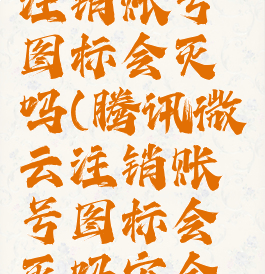 注销账号
图标会灭
吗(腾讯微
云注销账
号图标会
灭吗安全